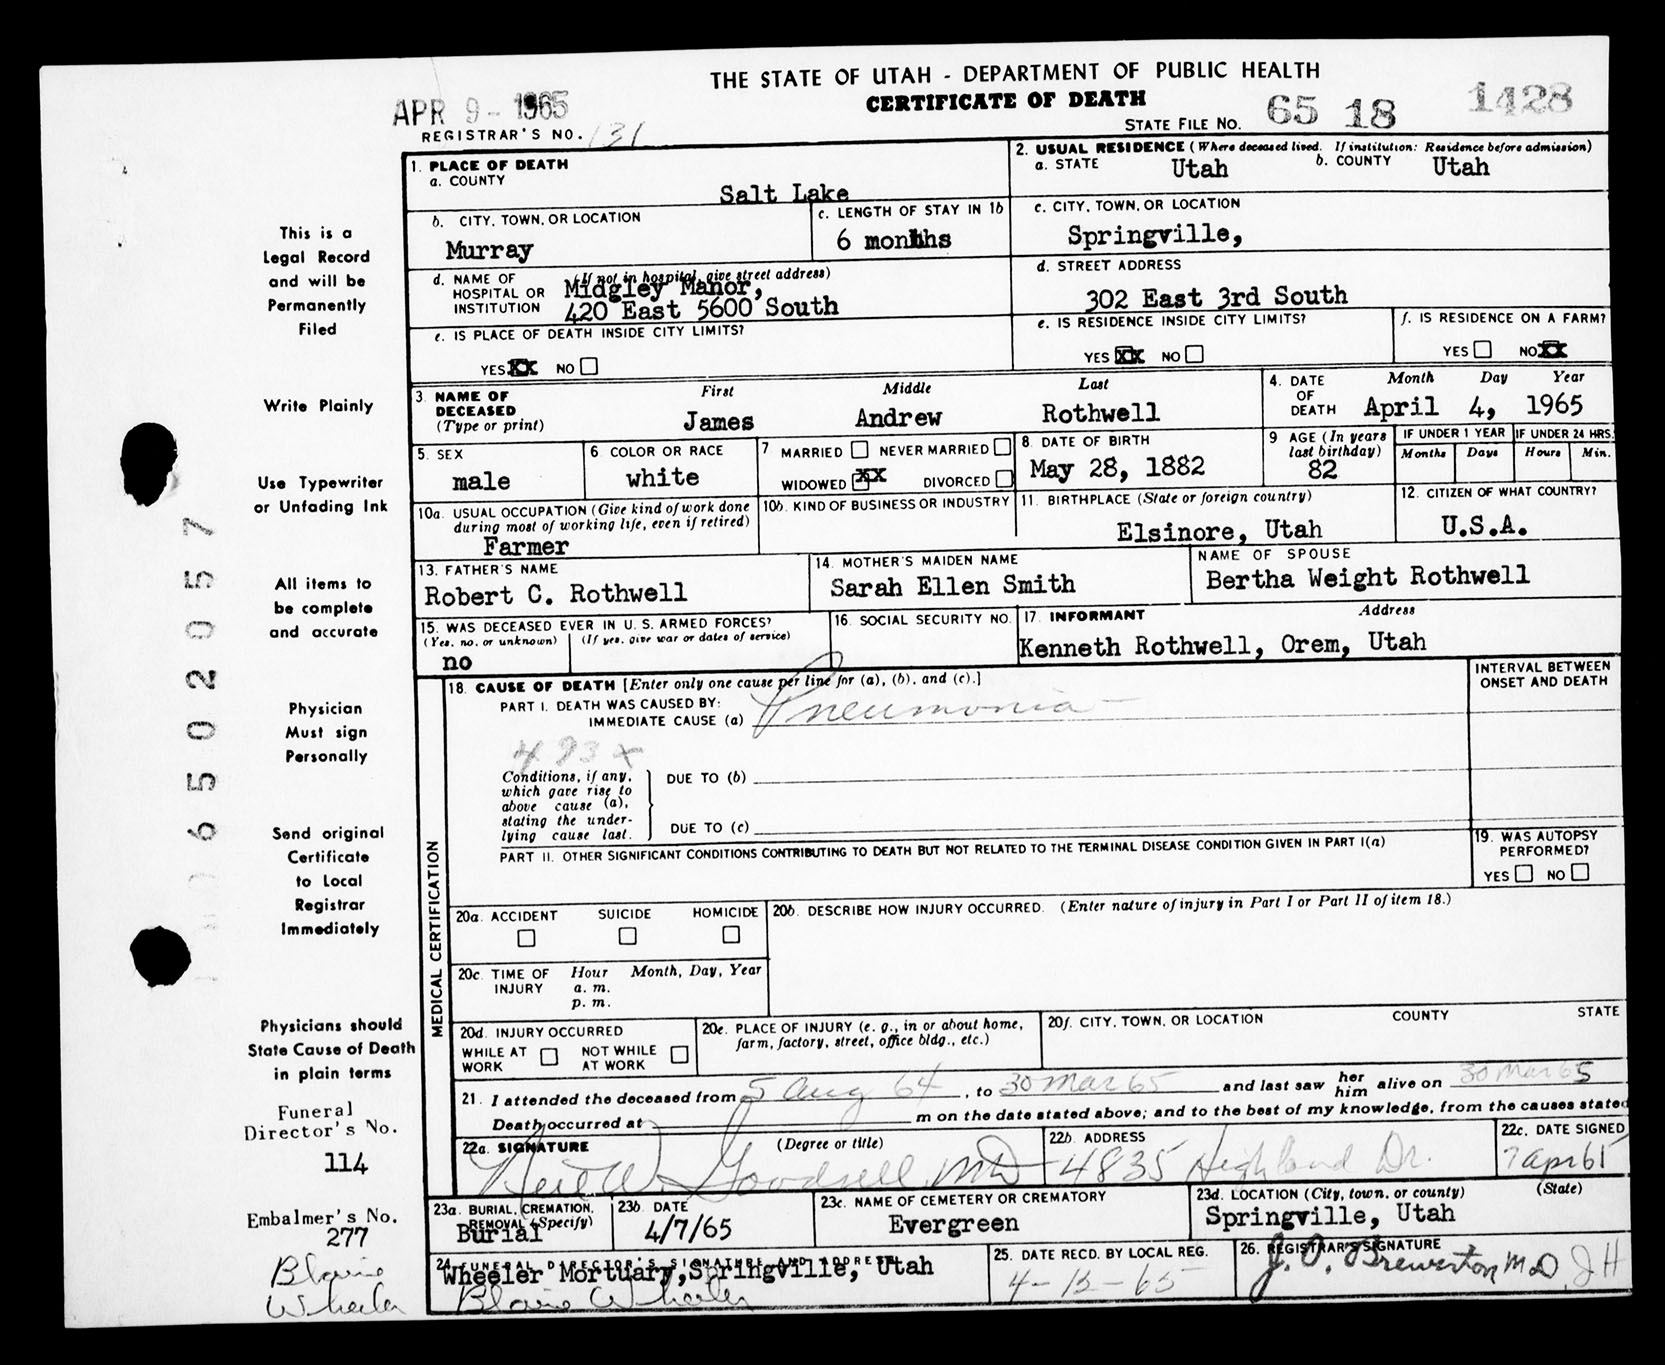 THE STATE OF UTAH - DEPARTMENT OF PUBLIC HEALTH
CERTIFICATE OF DEATH
APR 9 - 1965
REGISTRAR'S NO. 131
STATE FILE NO. 65 18 1428
1. PLACE OF DEATH
a. COUNTY
Salt Lake
2. USUAL RESIDENCE (Where deceased lived. If institution: Residence before admission)
a. STATE Utah b. COUNTY Utah
b. CITY, TOWN, OR LOCATION
Murray
c. LENGTH OF STAY IN 1b
6 months
c. CITY, TOWN, OR LOCATION
Springville,
d. NAME OF HOSPITAL OR INSTITUTION (If not in hospital, give street address)
Midgley Manor,
420 East 5600 South
d. STREET ADDRESS
302 East 3rd South
e. IS PLACE OF DEATH INSIDE CITY LIMITS?
YES XX NO
e. IS RESIDENCE INSIDE CITY LIMITS?
YES XX NO
f. IS RESIDENCE ON A FARM?
YES NO XX
3. NAME OF DECEASED (Type or print)
First Middle Last
James Andrew Rothwell
4. DATE OF DEATH
Month Day Year
April 4, 1965
5. SEX
male
6. COLOR OR RACE
white
7. MARRIED NEVER MARRIED
WIDOWED XX DIVORCED
8. DATE OF BIRTH
May 28, 1882
9 AGE (In years last birthday)
82
IF UNDER 1 YEAR
Months Days
IF UNDER 24 HRS.
Hours Min.
10a. USUAL OCCUPATION (Give kind of work done during most of working life, even if retired)
Farmer
10b. KIND OF BUSINESS OR INDUSTRY
11. BIRTHPLACE (State or foreign country)
Elsinore, Utah
12. CITIZEN OF WHAT COUNTRY?
U.S.A.
13. FATHER'S NAME
Robert C. Rothwell
14. MOTHER'S MAIDEN NAME
Sarah Ellen Smith
NAME OF SPOUSE
Bertha Weight Rothwell
15. WAS DECEASED EVER IN U. S. ARMED FORCES?
(Yes, no, or unknown) (If yes, give war or dates of service)
no
16. SOCIAL SECURITY NO.
17. INFORMANT Address
Kenneth Rothwell, Orem, Utah
MEDICAL CERTIFICATION
18. CAUSE OF DEATH [Enter only one cause per line for (a), (b), and (c).]
INTERVAL BETWEEN ONSET AND DEATH
PART I. DEATH WAS CAUSED BY:
IMMEDIATE CAUSE (a) Pneumonia
493x
Conditions, if any, which gave rise to above cause (a), stating the underlying cause last.
DUE TO (b)
DUE TO (c)
PART II. OTHER SIGNIFICANT CONDITIONS CONTRIBUTING TO DEATH BUT NOT RELATED TO THE TERMINAL DISEASE CONDITION GIVEN IN PART I(a)
19. WAS AUTOPSY PERFORMED?
YES NO
20a. ACCIDENT SUICIDE HOMICIDE
20b. DESCRIBE HOW INJURY OCCURRED. (Enter nature of injury in Part I or Part II of item 18.)
20c. TIME OF INJURY Hour Month, Day, Year
a. m.
p. m.
20d. INJURY OCCURRED
WHILE AT WORK NOT WHILE AT WORK
20e. PLACE OF INJURY (e. g., in or about home, farm, factory, street, office bldg., etc.)
20f. CITY, TOWN, OR LOCATION COUNTY STATE
21. I attended the deceased from 5 Aug 64, to 30 Mar 65 and last saw her him alive on 30 Mar 65
Death occurred at m on the date stated above; and to the best of my knowledge, from the causes stated
22a. SIGNATURE (Degree or title)
Neil W. Goodsell MD
22b. ADDRESS
4835 Highland Dr.
22c. DATE SIGNED
7 Apr 65
23a. BURIAL, CREMATION, REMOVAL (Specify)
Burial
23b. DATE
4/7/65
23c. NAME OF CEMETERY OR CREMATORY
Evergreen
23d. LOCATION (City, town, or county) (State)
Springville, Utah
24. FUNERAL DIRECTOR'S SIGNATURE AND ADDRESS
Wheeler Mortuary, Springville, Utah
Blaine Wheeler
25. DATE RECD. BY LOCAL REG.
26. REGISTRAR'S SIGNATURE
J. O. Brewerton M.D. JH
This is a
Legal Record
and will be
Permanently
Filed
Write Plainly
Use Typewriter
or Unfading Ink
All items to
be complete
and accurate
Physician
Must sign
Personally
Send original
Certificate
to Local
Registrar
Immediately
Physicians should
State Cause of Death
in plain terms
Funeral
Director's No.
114
Embalmer's No.
277
Blaine
Wheeler
0650 2 9 0 5 7